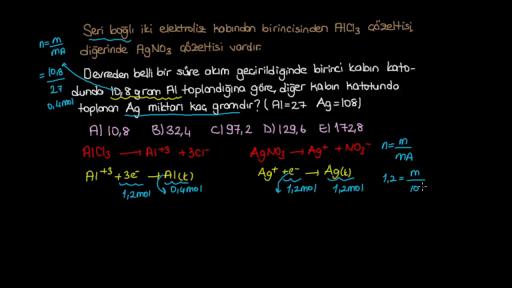 Seri bağlı iki elektroliz kabından birincisinden AlCl3 çözeltisi,
diğerinde AgNO3 çözeltisi vardır.
n = m/mA
= 10,8/27
0,4mol
Devreden belli bir süre akım geçirildiğinde birinci kabın kato-
dunda 10,8 gram Al toplandığına göre, diğer kabın katotunda
toplanan Ag miktarı kaç gramdır? (Al=27 Ag=108)
A) 10,8 B) 32,4 C) 97,2 D) 129,6 E) 172,8
AlCl3 → Al+3 + 3Cl-
AgNO3 → Ag+ + NO3-
n = m/MA
Al+3 + 3e- → Al(k)
1,2mol 0,4mol
Ag+ + e- → Ag(k)
1,2mol 1,2mol
1,2 = m/10